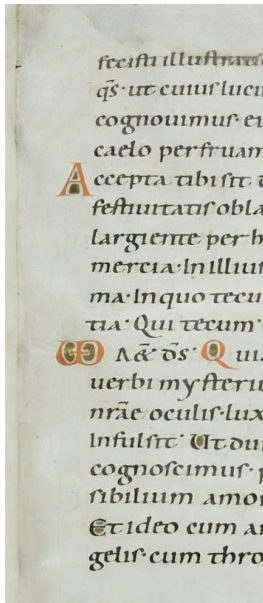 fecisti illustrati
q̄s· ut cuius luci
cognovimus· ei
caelo perfruam
Accepta tibi sit·
festivitatis obla
largiente per h
mercia· In illius
ma· In quo tecu
tia· Qui tecum·
UD Ae& dš Quia
verbi mysteriu
nrāe oculis· lux
Infulsit· Ut du
cognoscimus·
sibilium amo
Et ideo cum a
gelis· cum thro